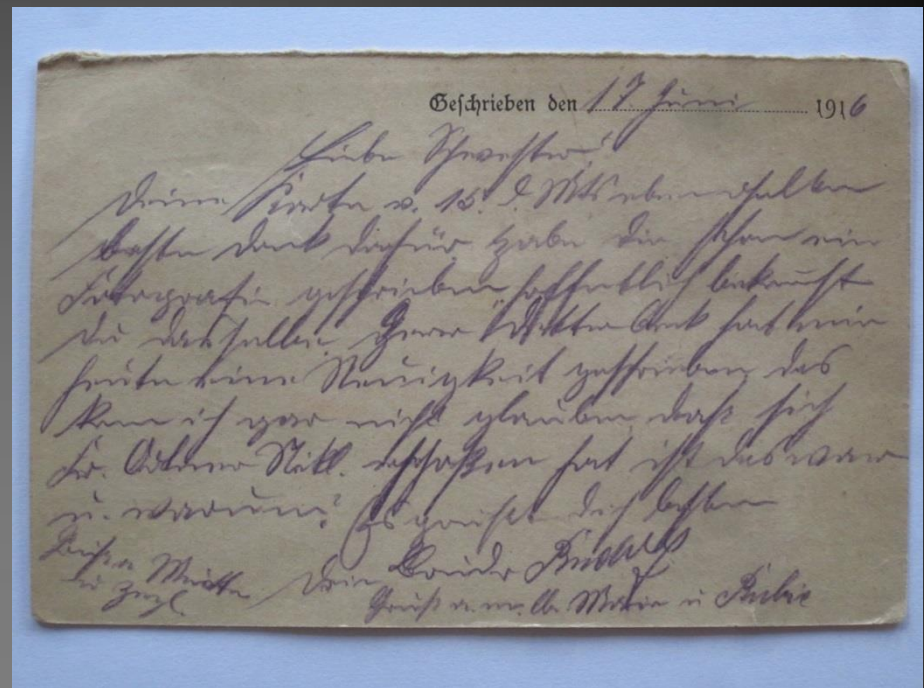 Geschrieben den 17. Juni 1916
Liebe Schwester!
Deine Karte v. 15. d. Mts erhalten
besten Dank dafür habe dir schon ein
geschrieben hoffentlich bekommst
du dasselbe. Herr hat mir
heute eine Neuigkeit geschrieben das
kan ich gar nicht glauben, daß sich
Fr. erschoßen hat ist das war
u. warum? Es grüßt dich bestens
Dein Bruder Rudolf
Gruß a. m. lb. Marie u